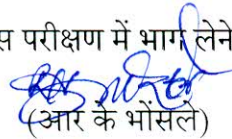 स परीक्षण में भाग लेने
(आर के भोंसले)